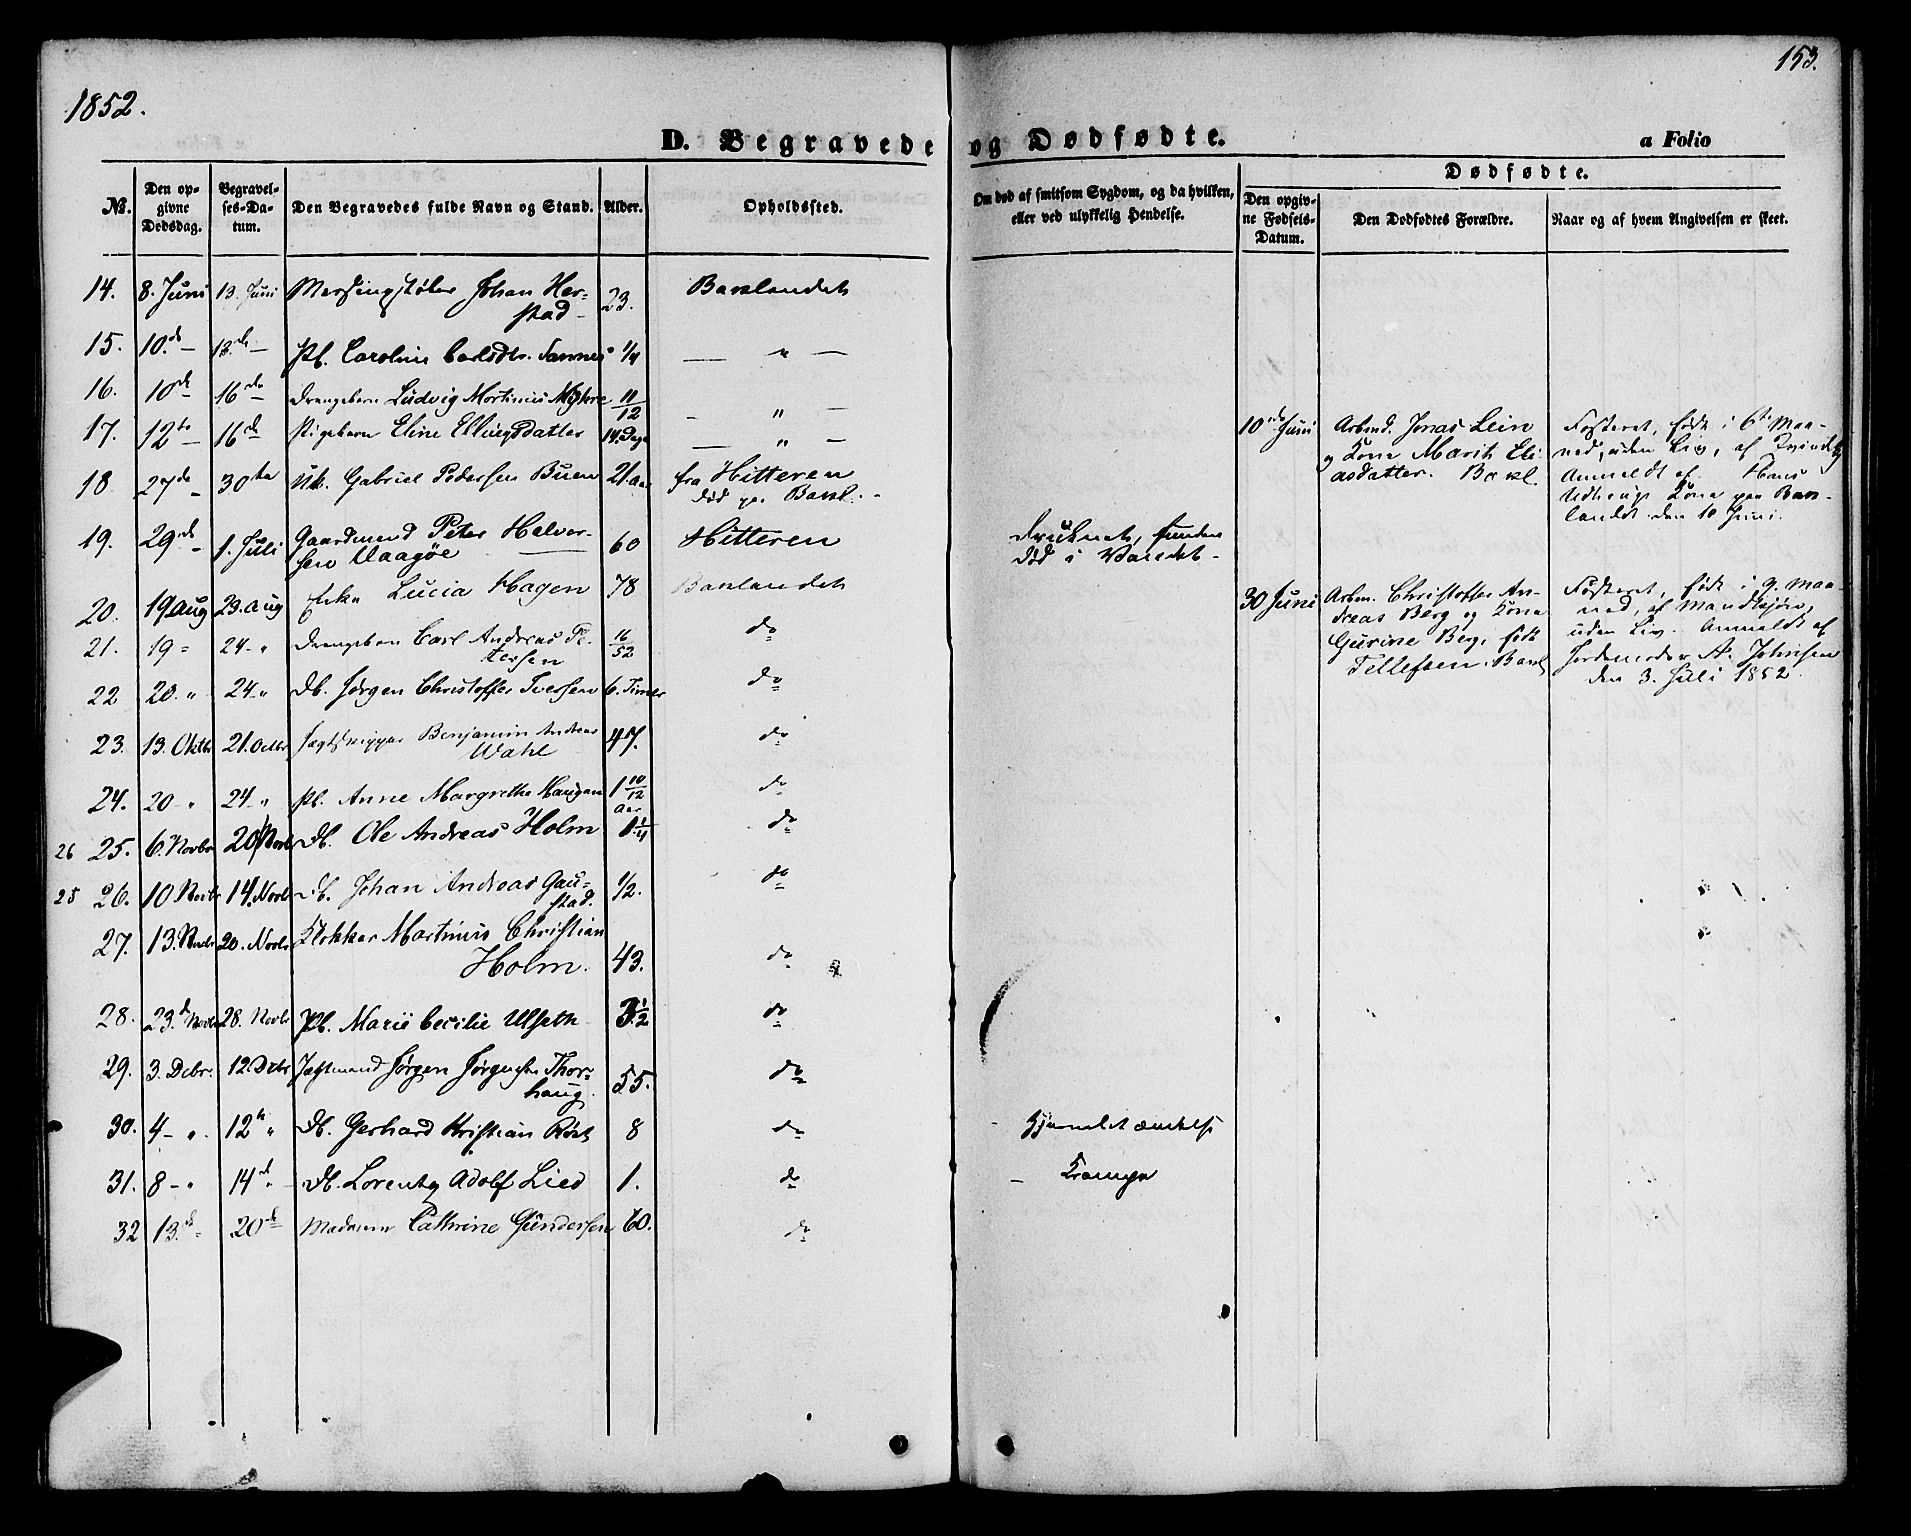 153.
1852.
D. Begravede og Dødfødte.
a Folio
№.
Den opgivne Dødsdag.
Begravelses-Datum.
Den Begravedes fulde Navn og Stand.
Alder.
Opholdssted.
Om død af smitsom Sygdom, og da hvilken, eller ved ulykkelig Hendelse.
Dødfødte.
Den opgivne Fødsels-Datum.
Den Dødfødtes Forældre.
Naar og af hvem Angivelsen er skeet.
14. 8. Juni 13. Juni Messingstøber Johan Her- 23. Baklandet
stad
15. 10.de — 13.de — Pb. Caroline Carlsdtr. Tannes 1/4 — " —
16. 10de 16de Drengebarn Ludvig Martinius Myhre 11/12 — " —
17. 12te — 16de Pigebarn Eline Ellingsdatter 14 Dage — " —
10de Juni Arbmd. Jonas Lein
og Kone Marit Eli-
asdatter. Bakl.
Fosteret, født i 6te Maa-
ned, uden Liv, af Qvindekj
Anmeldt af Hans
Kone paa Bak-
landet den 10 Juni.
18 27de - 30te Uk. Gabriel Pedersen Buen 21. Aar fra Hitteren
død pa. Bakl.
19. 29de - 1. Juli Gaardmand Peter Halvor- 60 Hitteren
sen Vaagöe
Druknet, funden
død i Vandet -
20. 19 Aug 23. Aug Enke Lucia Hagen 78 Baklandet
30 Juni Arbm. Christoffer An-
dreas Berg og Kone
Gurine Berg, født
Tellefsen. Bakl
Fosteret, født i 9. Maa-
ned, af Mandkjøn,
uden Liv. Anmeldt af
Jordemoder A. Johnsen
den 3. Juli 1852.
21. 19 " 24 - " Drengebarn Carl Andreas Pe- 16/52 do
tersen
22 20. " 24 - " Db. Jørgen Christoffer Iversen 6. Timer do
23. 13. Octbr 21. Octbr Jægtskipper Benjamin Andreas 47. do
Wahl
24. 20 - " 24 - " Pb. Anne Margrethe Haugan 1 10/12 Aar do
26 25. 6. Novbr 20 Novbr Db. Ole Andreas Holm 1 1/4 do
25 26. 10 Novbr 14. Novbr Db. Johan Andreas Gau- 1/2. do
stad.
27. 13. Novbr 20. Novbr Klokker Martinus Christian
Holm. 43. do
28. 23.d Novbr 28. Novbr Pb. Marie Cecilie Ulseth 3 1/2 do
29. 3. Decbr. 12. Decbr Jægtmand Jørgen Jørgensen Thor- 55. do
haug.
30. 4 - " 12te " Db. Gerhard Kristian Röst 8 do
31. 8 - " 14d " Db. Lorentz Adolf Lied 1. do
- Krampe
32 13.de 20de Madame Cathrine Gundersen 60. do